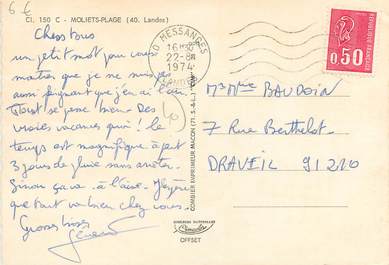 6 €
Cl. 150 C - MOLIETS-PLAGE (40. Landes)
Chers tous
un petit mot pour vous
montrer que je ne suis pas
aussi feignant que j'en ai l'air
Tout se passe bien. Des
vraies vacances quoi! le
temps est magnifique à part
3 jours de pluie sans arrêter.
Sinon ça va. à l'aise. J'espère
que tout va bien chez vous.
Grosses bises
40 MESSANGES
16H30
22-8
1974
LANDES
COMBIER IMPRIMEUR MACON (71. S.-&-L.)
OFFSET
REPUBLIQUE FRANCAISE
0,50
POSTES
M & Mme BAUDOIN
7 Rue Berthelot
DRAVEIL 91210